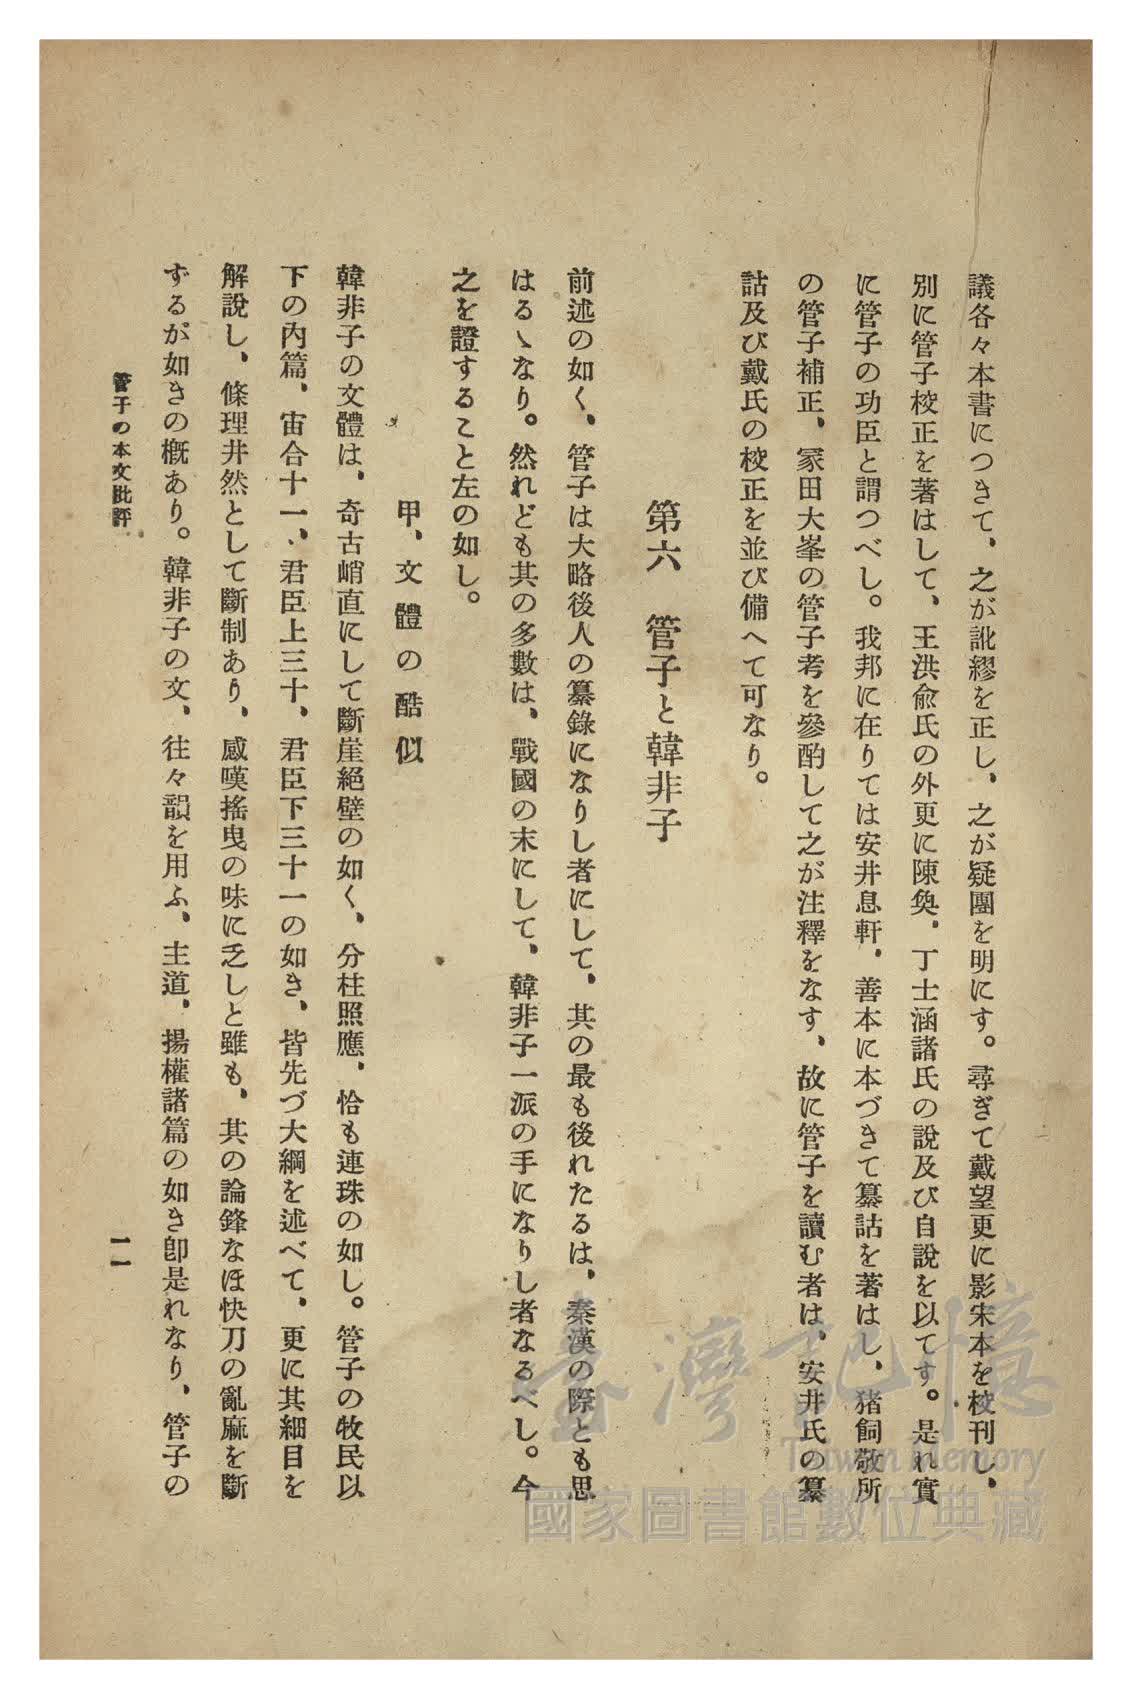 議各々本書につきて、之が訛繆を正し、之が疑團を明にす。尋ぎて戴望更に影宋本を校刊し、
別に管子校正を著はして、王洪兪氏の外更に陳奐、丁士涵諸氏の說及び自說を以てす。是れ實
に管子の功臣と謂つべし。我邦に在りては安井息軒、善本に本づきて纂詁を著はし、猪飼敬所
の管子補正、冢田大峯の管子考を參酌して之が注釋をなす、故に管子を讀む者は、安井氏の纂
詁及び戴氏の校正を並び備へて可なり。
第六 管子と韓非子
前述の如く、管子は大略後人の纂錄になりし者にして、其の最も後れたるは、秦漢の際とも思
はるゝなり。然れども其の多數は、戰國の末にして、韓非子一派の手になりし者なるべし。今
之を證すること左の如し。
甲、文體の酷似
韓非子の文體は、奇古峭直にして斷崖絕壁の如く、分柱照應、恰も連珠の如し。管子の牧民以
下の內篇、宙合十一、君臣上三十、君臣下三十一の如き、皆先づ大綱を述べて、更に其細目を
解說し、條理井然として斷制あり、感嘆搖曳の味に乏しと雖も、其の論鋒なほ快刀の亂麻を斷
ずるが如きの槪あり。韓非子の文、往々韻を用ふ、主道、揚權諸篇の如き卽是れなり、管子の
管子の本文批評
一一
臺灣記憶
Taiwan Memory
國家圖書館數位典藏